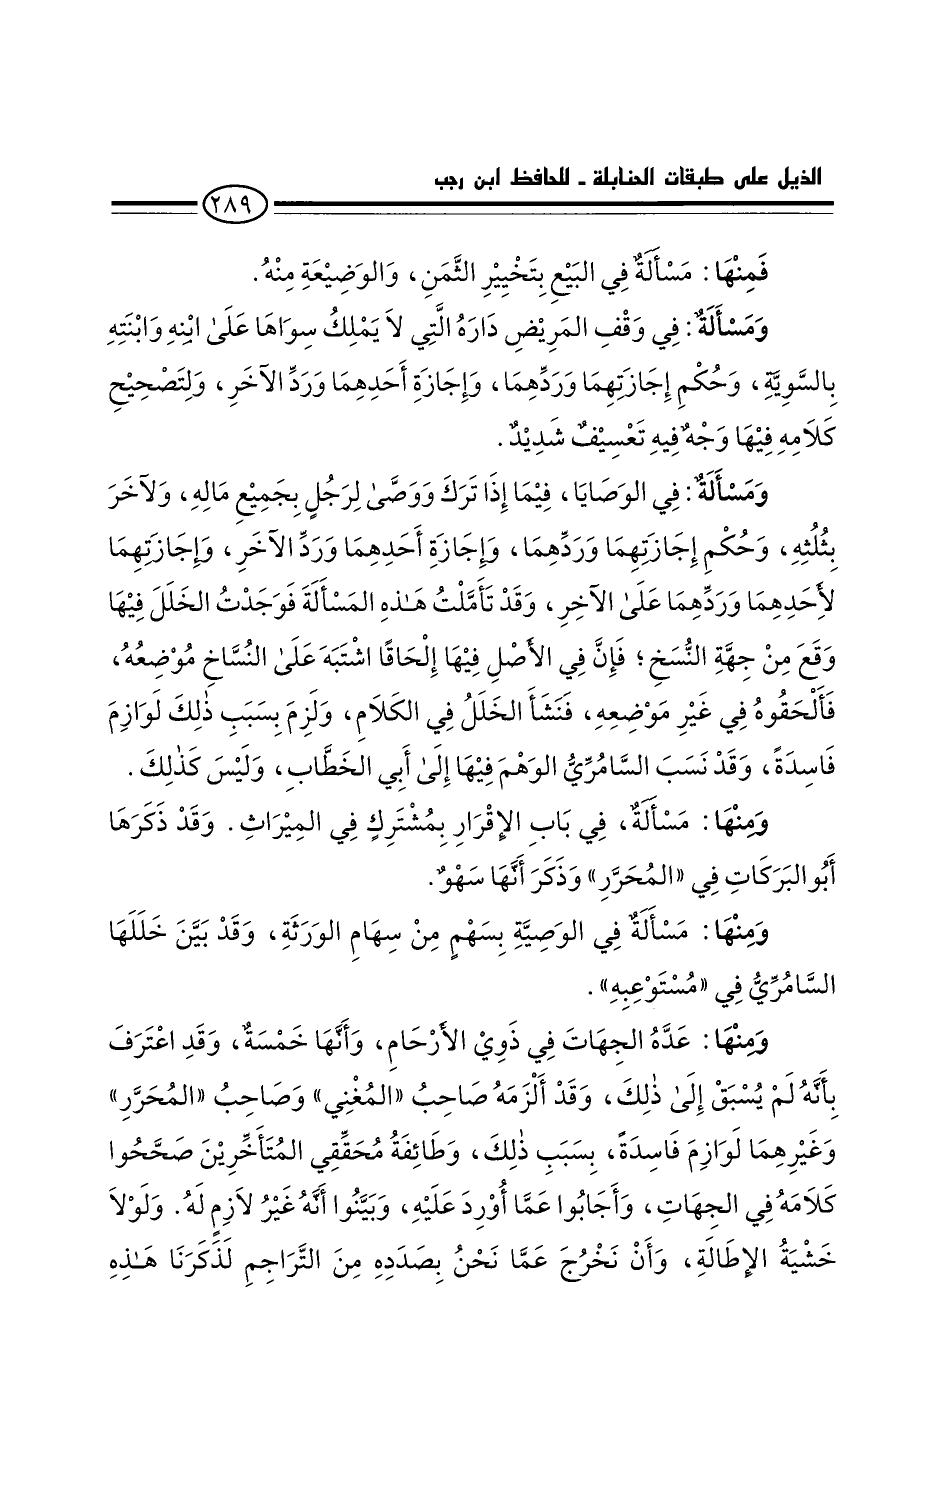 الذيل على طبقات الحنابلة ـ للحافظ ابن رجب
٢٨٩
فَمِنْهَا: مَسْأَلَةٌ فِي البَيْعِ بِتَخْيِيْرِ الثَّمَنِ، وَالوَضِيْعَةِ مِنْهُ.
وَمَسْأَلَةٌ: فِي وَقْفِ المَرِيْضِ دَارَهُ الَّتِي لاَ يَمْلِكُ سِوَاهَا عَلَىٰ ابْنِهِ وَابْنَتِهِ
بِالسَّوِيَّةِ، وَحُكْمِ إِجَازَتِهِمَا وَرَدِّهِمَا، وَإِجَازَةِ أَحَدِهِمَا وَرَدِّ الآخَرِ، وَلِتَصْحِيْحِ
كَلاَمِهِ فِيْهَا وَجْهٌ فِيهِ تَعْسِيْفٌ شَدِيْدٌ.
وَمَسْأَلَةٌ: فِي الوَصَايَا، فِيْمَا إِذَا تَرَكَ وَوَصَّىٰ لِرَجُلٍ بِجَمِيْعِ مَالِهِ، وَلآخَرَ
بِثُلُثِهِ، وَحُكْمِ إِجَازَتِهِمَا وَرَدِّهِمَا، وَإِجَازَةِ أَحَدِهِمَا وَرَدِّ الآخَرِ، وَإِجَازَتِهِمَا
لأَحَدِهِمَا وَرَدِّهِمَا عَلَىٰ الآخِرِ، وَقَدْ تَأَمَّلْتُ هَـٰذِهِ المَسْأَلَةَ فَوَجَدْتُ الخَلَلَ فِيْهَا
وَقَعَ مِنْ جِهَّةِ النُّسَخِ؛ فَإِنَّ فِي الأَصْلِ فِيْهَا إِلْحَاقًا اشْتَبَهَ عَلَىٰ النُّسَّاخِ مُوْضِعُهُ،
فَأَلْحَقُوهُ فِي غَيْرِ مَوْضِعِهِ، فَنَشَأَ الخَلَلُ فِي الكَلاَمِ، وَلَزِمَ بِسَبَبِ ذٰلِكَ لَوَازِمَ
فَاسِدَةً، وَقَدْ نَسَبَ السَّامُرِّيُّ الوَهْمَ فِيْهَا إِلَىٰ أَبِي الخَطَّابِ، وَلَيْسَ كَذٰلِكَ.
وَمِنْهَا: مَسْأَلَةٌ، فِي بَابِ الإِقْرَارِ بِمُشْتَرِكٍ فِي المِيْرَاثِ. وَقَدْ ذَكَرَهَا
أَبُو البَرَكَاتِ فِي «المُحَرَّرِ» وَذَكَرَ أَنَّهَا سَهْوٌ.
وَمِنْهَا: مَسْأَلَةٌ فِي الوَصِيَّةِ بِسَهْمٍ مِنْ سِهَامِ الوَرَثَةِ، وَقَدْ بَيَّنَ خَلَلَهَا
السَّامُرِّيُّ فِي «مُسْتَوْعِبِهِ».
وَمِنْهَا: عَدَّهُ الجِهَاتَ فِي ذَوِيْ الأَرْحَامِ، وَأَنَّهَا خَمْسَةٌ، وَقَدِ اعْتَرَفَ
بِأَنَّهُ لَمْ يُسْبَقْ إِلَىٰ ذٰلِكَ، وَقَدْ أَلْزَمَهُ صَاحِبُ «المُغْنِي» وَصَاحِبُ «المُحَرَّرِ»
وَغَيْرِهِمَا لَوَازِمَ فَاسِدَةً، بِسَبَبِ ذٰلِكَ، وَطَائِفَةُ مُحَقِّقِي المُتَأَخِّرِيْنَ صَحَّحُوا
كَلاَمَهُ فِي الجِهَاتِ، وَأَجَابُوا عَمَّا أُوْرِدَ عَلَيْهِ، وَبَيَّنُوا أَنَّهُ غَيْرُ لاَزِمٍ لَهُ. وَلَوْلاَ
خَشْيَةُ الإِطَالَةِ، وَأَنْ نَخْرُجَ عَمَّا نَحْنُ بِصَدَدِهِ مِنَ التَّرَاجِمِ لَذَكَرَنَا هَـٰذِهِ